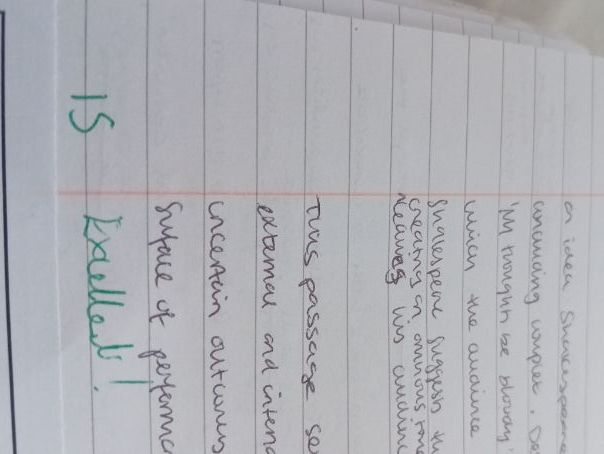 an idea Shakespeare
concluding couplet. De
'My thoughts be bloody'
which the audience
Shakespeare suggests th
creating an ominous tone
leaving his audienc
This passage se
external and intern
uncertain outcomes
surface of performanc
15 Excellent!